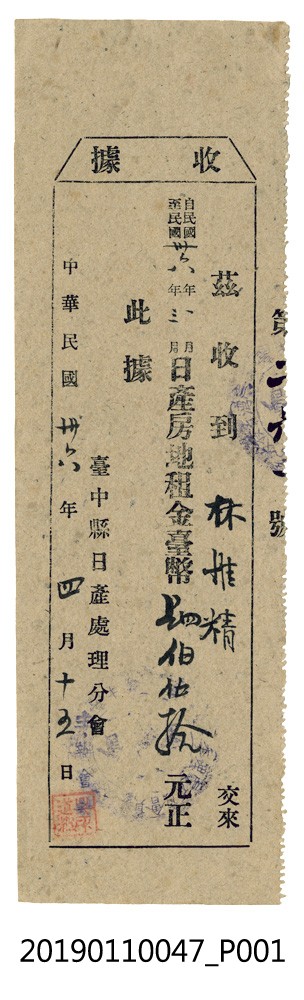 收據
第二六一號
茲收到林維精交來
自民國卅六年一月
至民國卅六年三月
日產房地租金臺幣肆佰伍拾元正
此據
臺中縣日產處理分會
中華民國卅六年四月十五日
20190110047_P001